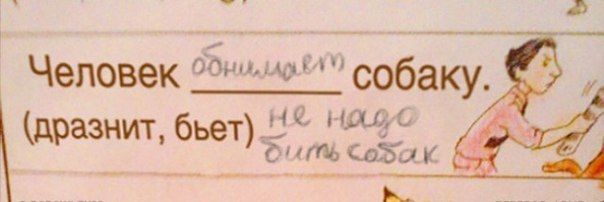 Человек обнимает собаку.
(дразнит, бьет) не надо
бить собак